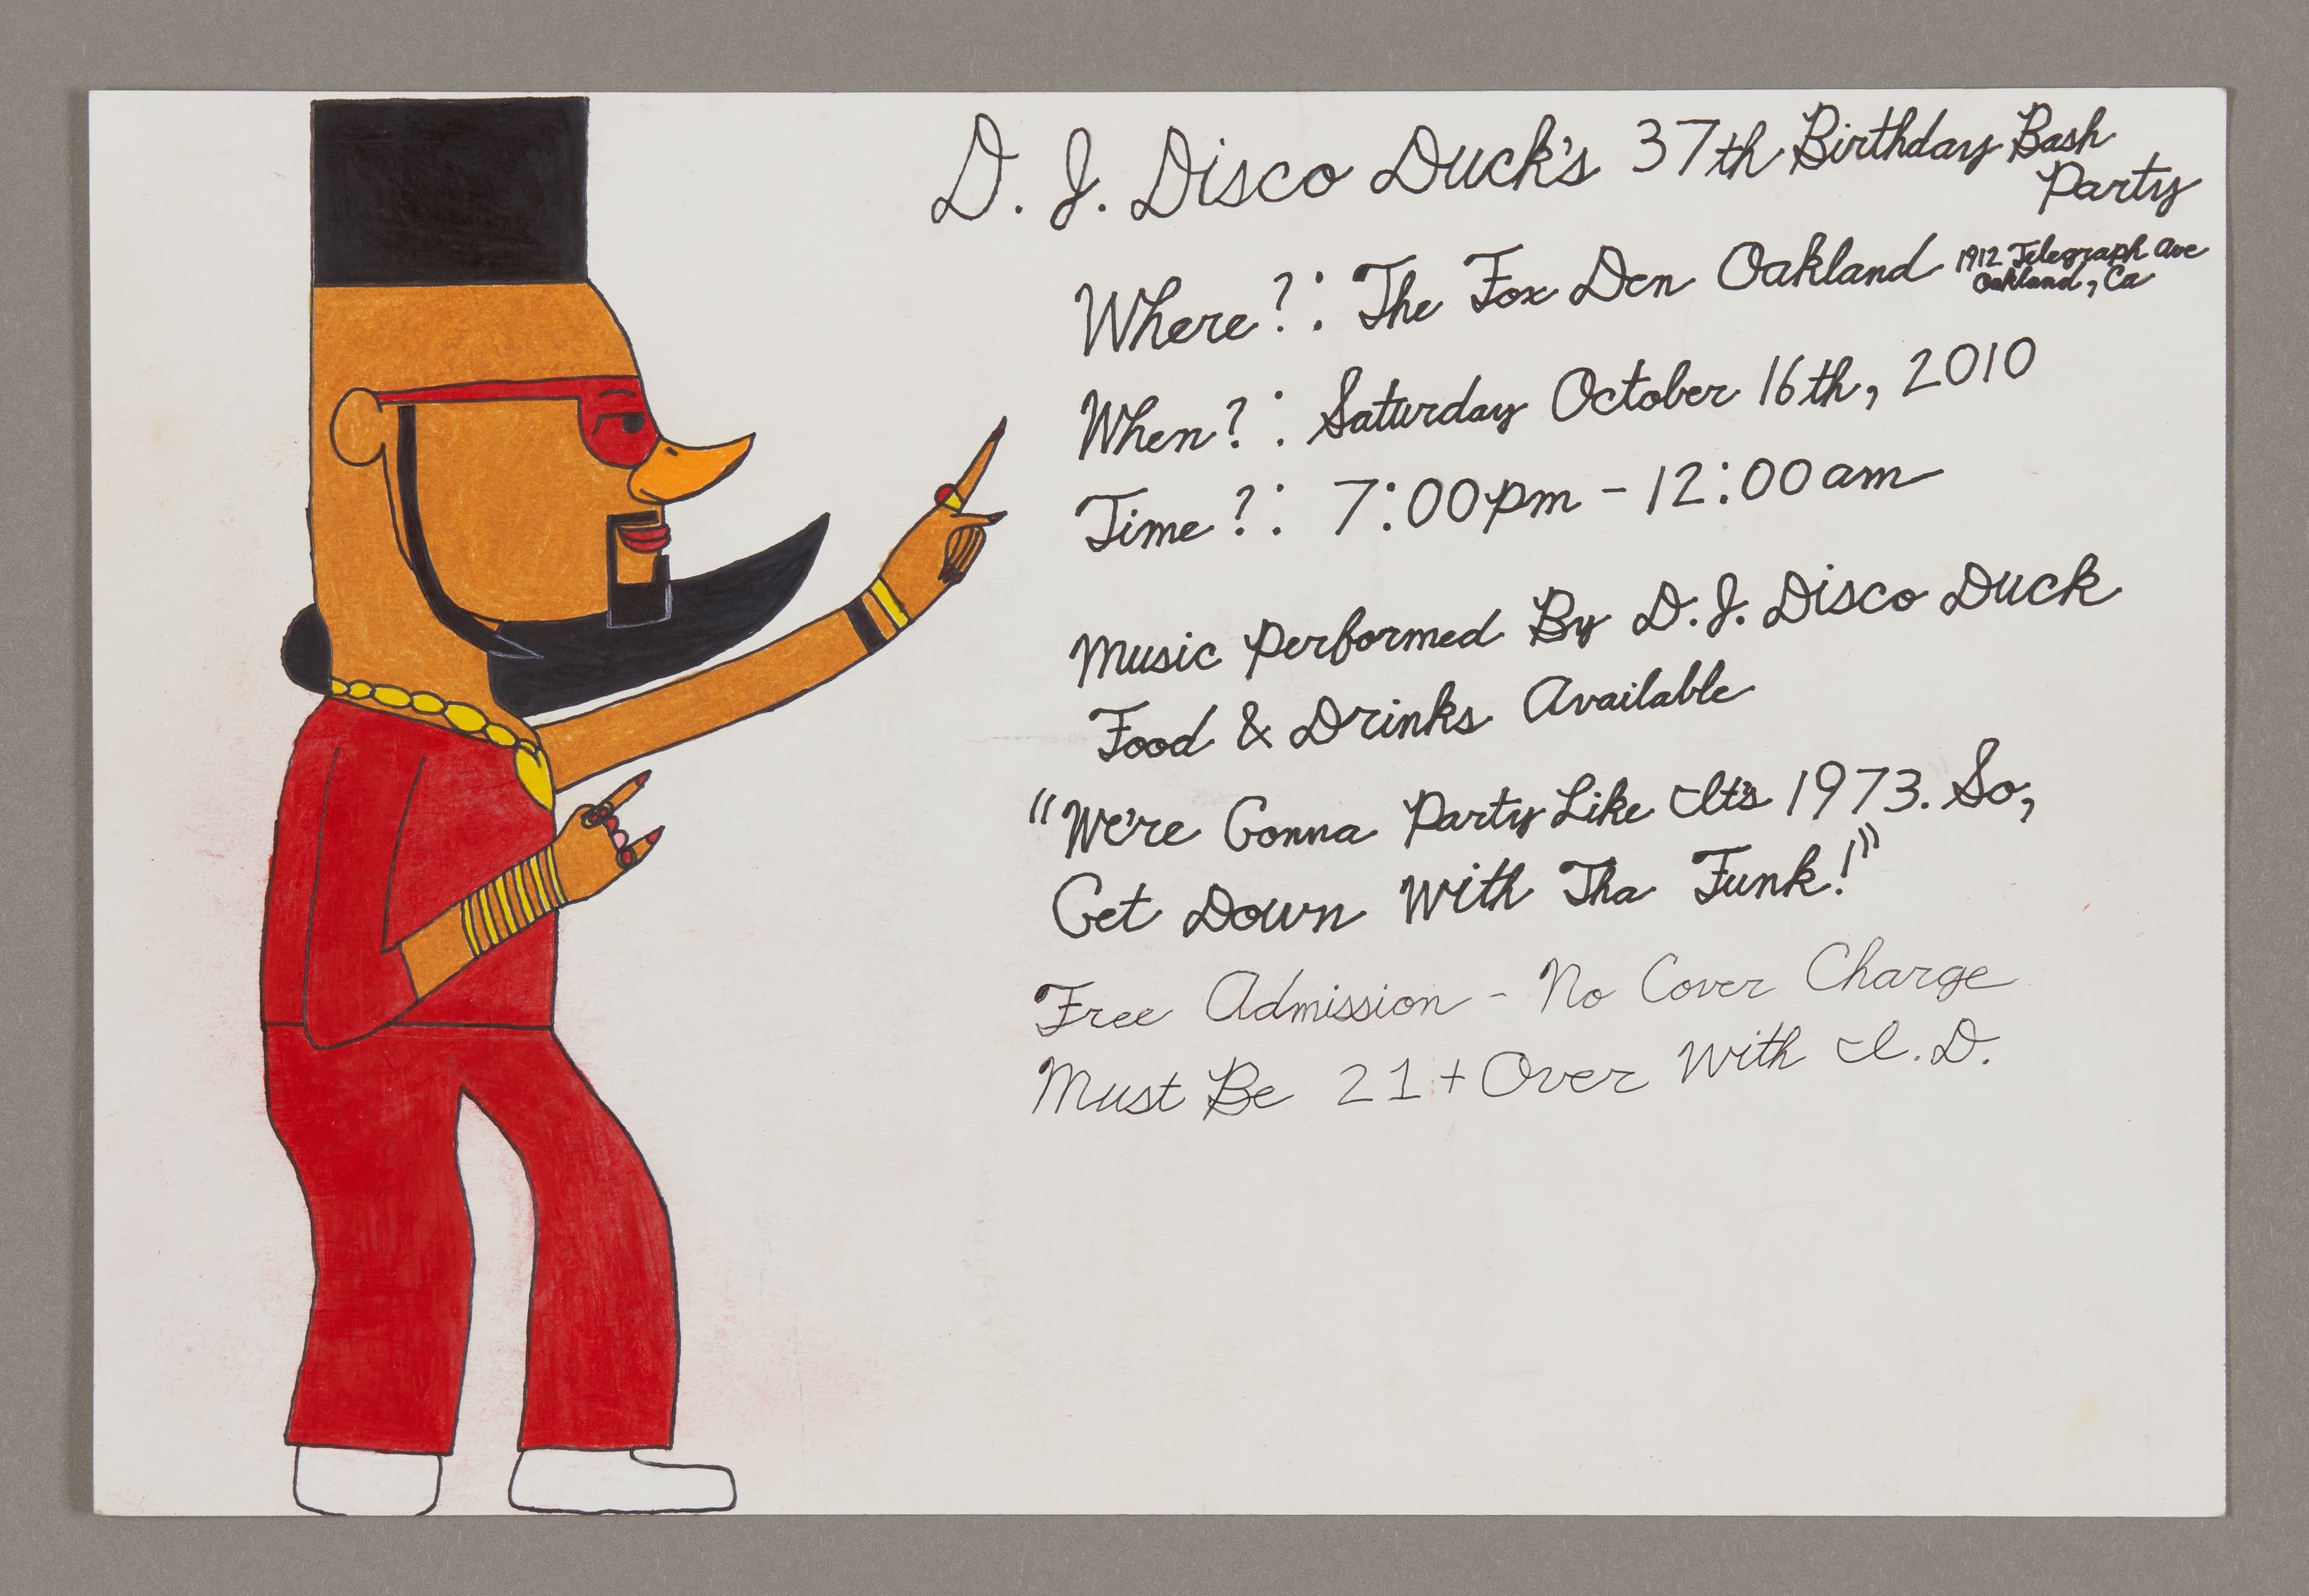 D. J. Disco Duck's 37th Birthday Bash
Party
Where?: The Fox Den Oakland 1912 Telegraph Ave
Oakland, Ca
When?: Saturday October 16th, 2010
Time?: 7:00pm - 12:00am
Music Performed By D.J. Disco Duck
Food & Drinks Available
"We're Gonna Party Like It's 1973. So,
Get Down With Tha Funk!"
Free Admission - No Cover Charge
Must Be 21+Over With I.D.